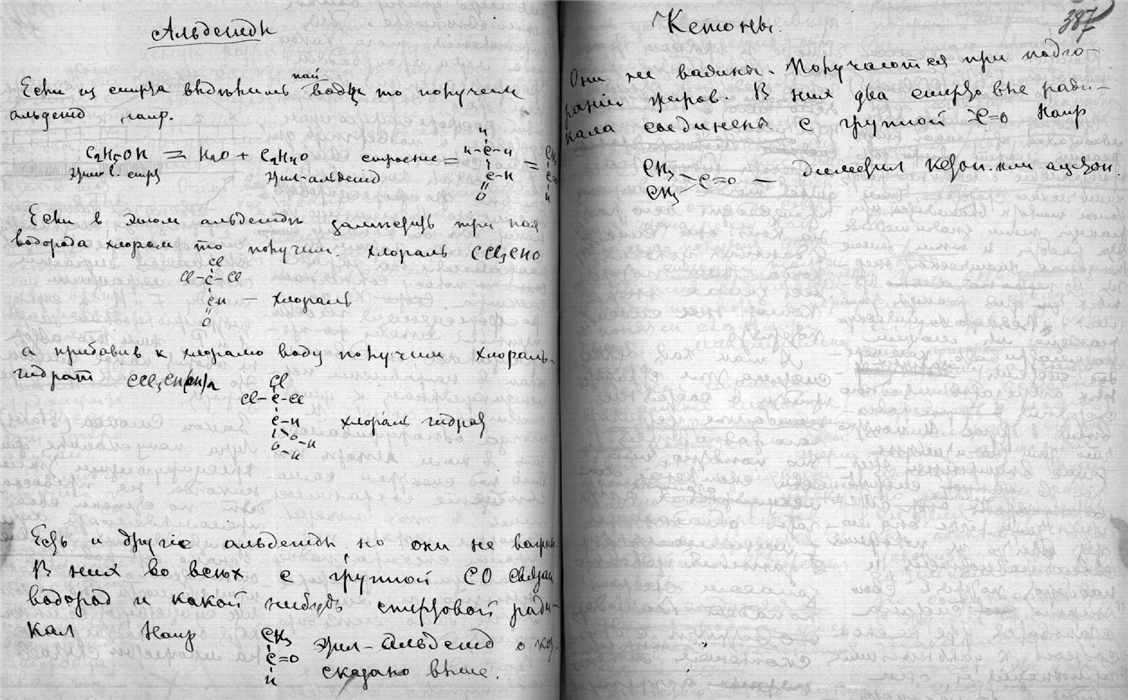 Альдегиды
Если из спирта выделить пай воды то получим
альдегид напр.
C₂H₅OH = H₂O + C₂H₄O строение =
этилов. спирт этил-альдегид
H
H–C–H
C–H
O
=
CH₃
Если в этом альдегиде заместить три пая
водорода хлором то получим хлораль CCl₃CHO
Cl
Cl–C–Cl
CH — хлораль
O
а прибавив к хлоралю воду получим хлораль-
гидрат CCl₃CH(OH)₂
Cl
Cl–C–Cl
C–H хлораль гидрат
O O–H
H
Есть и другие альдегиды, но они не важны
В них во всех с группой CO связан
водород и какой нибудь спиртовой ради-
кал Напр
CH₃
C=O этил-альдегид о кот.
H сказано выше.
387
Кетоны.
Они не важны. Получаются при подго-
рании жиров. В них два спиртовые ради-
кала соединены с группой C=O Напр
CH₃
CH₃ C=O — диметил кетон или ацетон.